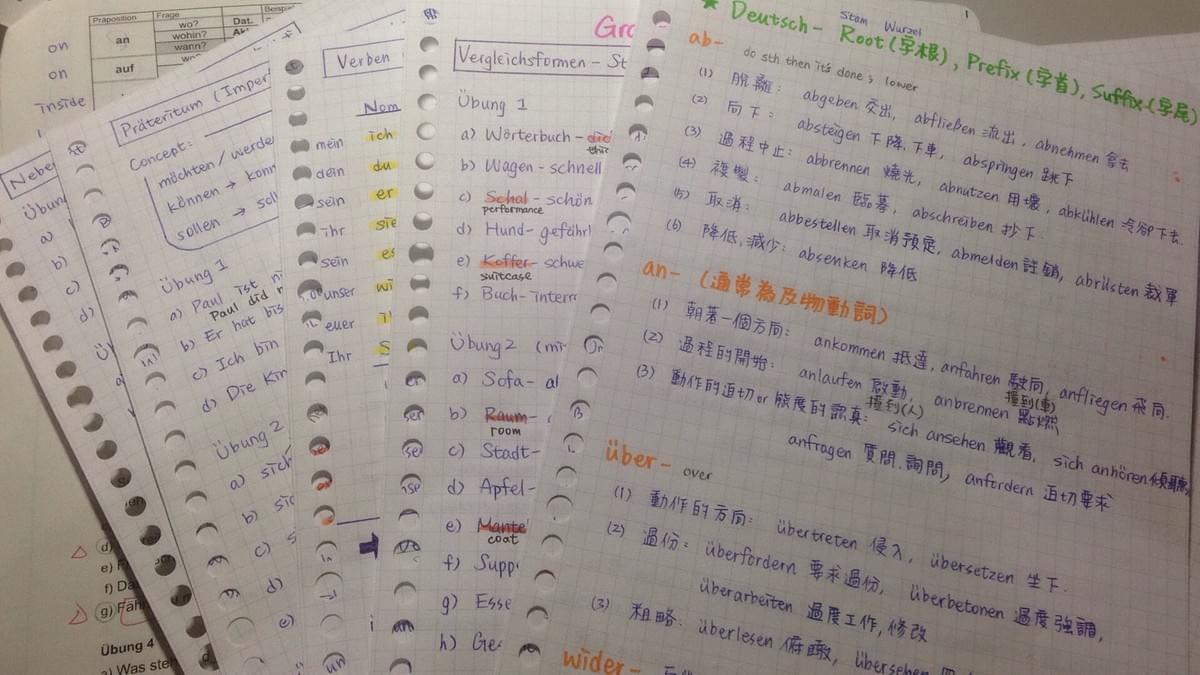 Präposition Frage Beispiel
wo? Dat.
on an wohin?
wann?
on auf
inside
Nebe
Übung
a)
b)
c)
d)
Präteritum (Imper
Concept:
möchten / werde
können → konn
sollen → soll
Übung 1
a) Paul ist ni
Paul did n
b) Er hat bis
c) Ich bin
d) Die Kin
Übung 2
a) sich
b) sic
c) s
d)
e)
d)
e)
f) Da
g) Fäh
Übung 4
a) Was ste
Verben
Nom
mein ich
dein du
sein er
ihr sie
sein es
unser wi
euer i
Ihr S
Gra
Vergleichsformen - St
Übung 1
a) Wörterbuch - dic
thic
b) Wagen - schnell
c) Schal - schön
performance
d) Hund - gefährl
e) Koffer - schwe
suitcase
f) Buch - interr
Übung 2 (mi
a) Sofa - al
b) Raum -
room
c) Stadt -
d) Apfel -
e) Mante
coat
f) Supp
g) Esse
h) Ge
Stam Wurzel
★ Deutsch - Root (字根), Prefix (字首), Suffix (字尾)
ab- do sth then it's done; lower
(1) 脫離: abgeben 交出, abfließen 流出, abnehmen 拿去
(2) 向下: absteigen 下降.下車, abspringen 跳下
(3) 過程中止: abbrennen 燒光, abnutzen 用壞, abkühlen 冷卻下去.
(4) 複製: abmalen 臨摹, abschreiben 抄下.
(5) 取消: abbestellen 取消預定, abmelden 註銷, abrüsten 裁軍
(6) 降低,減少: absenken 降低
an- (通常為及物動詞)
(1) 朝著一個方向: ankommen 抵達, anfahren 駛向, anfliegen 飛向.
撞到(人) 撞到(車)
(2) 過程的開始: anlaufen 啟動, anbrennen 點燃
(3) 動作的迫切or態度的認真: sich ansehen 觀看, sich anhören 傾聽,
anfragen 質問.詢問, anfordern 迫切要求
über- over
(1) 動作的方向: übertreten 侵入, übersetzen 坐下.
(2) 過份: überfordern 要求過份, überbetonen 過度強調,
überarbeiten 過度工作,修改
(3) 粗略: überlesen 俯瞰, übersehen
wider-